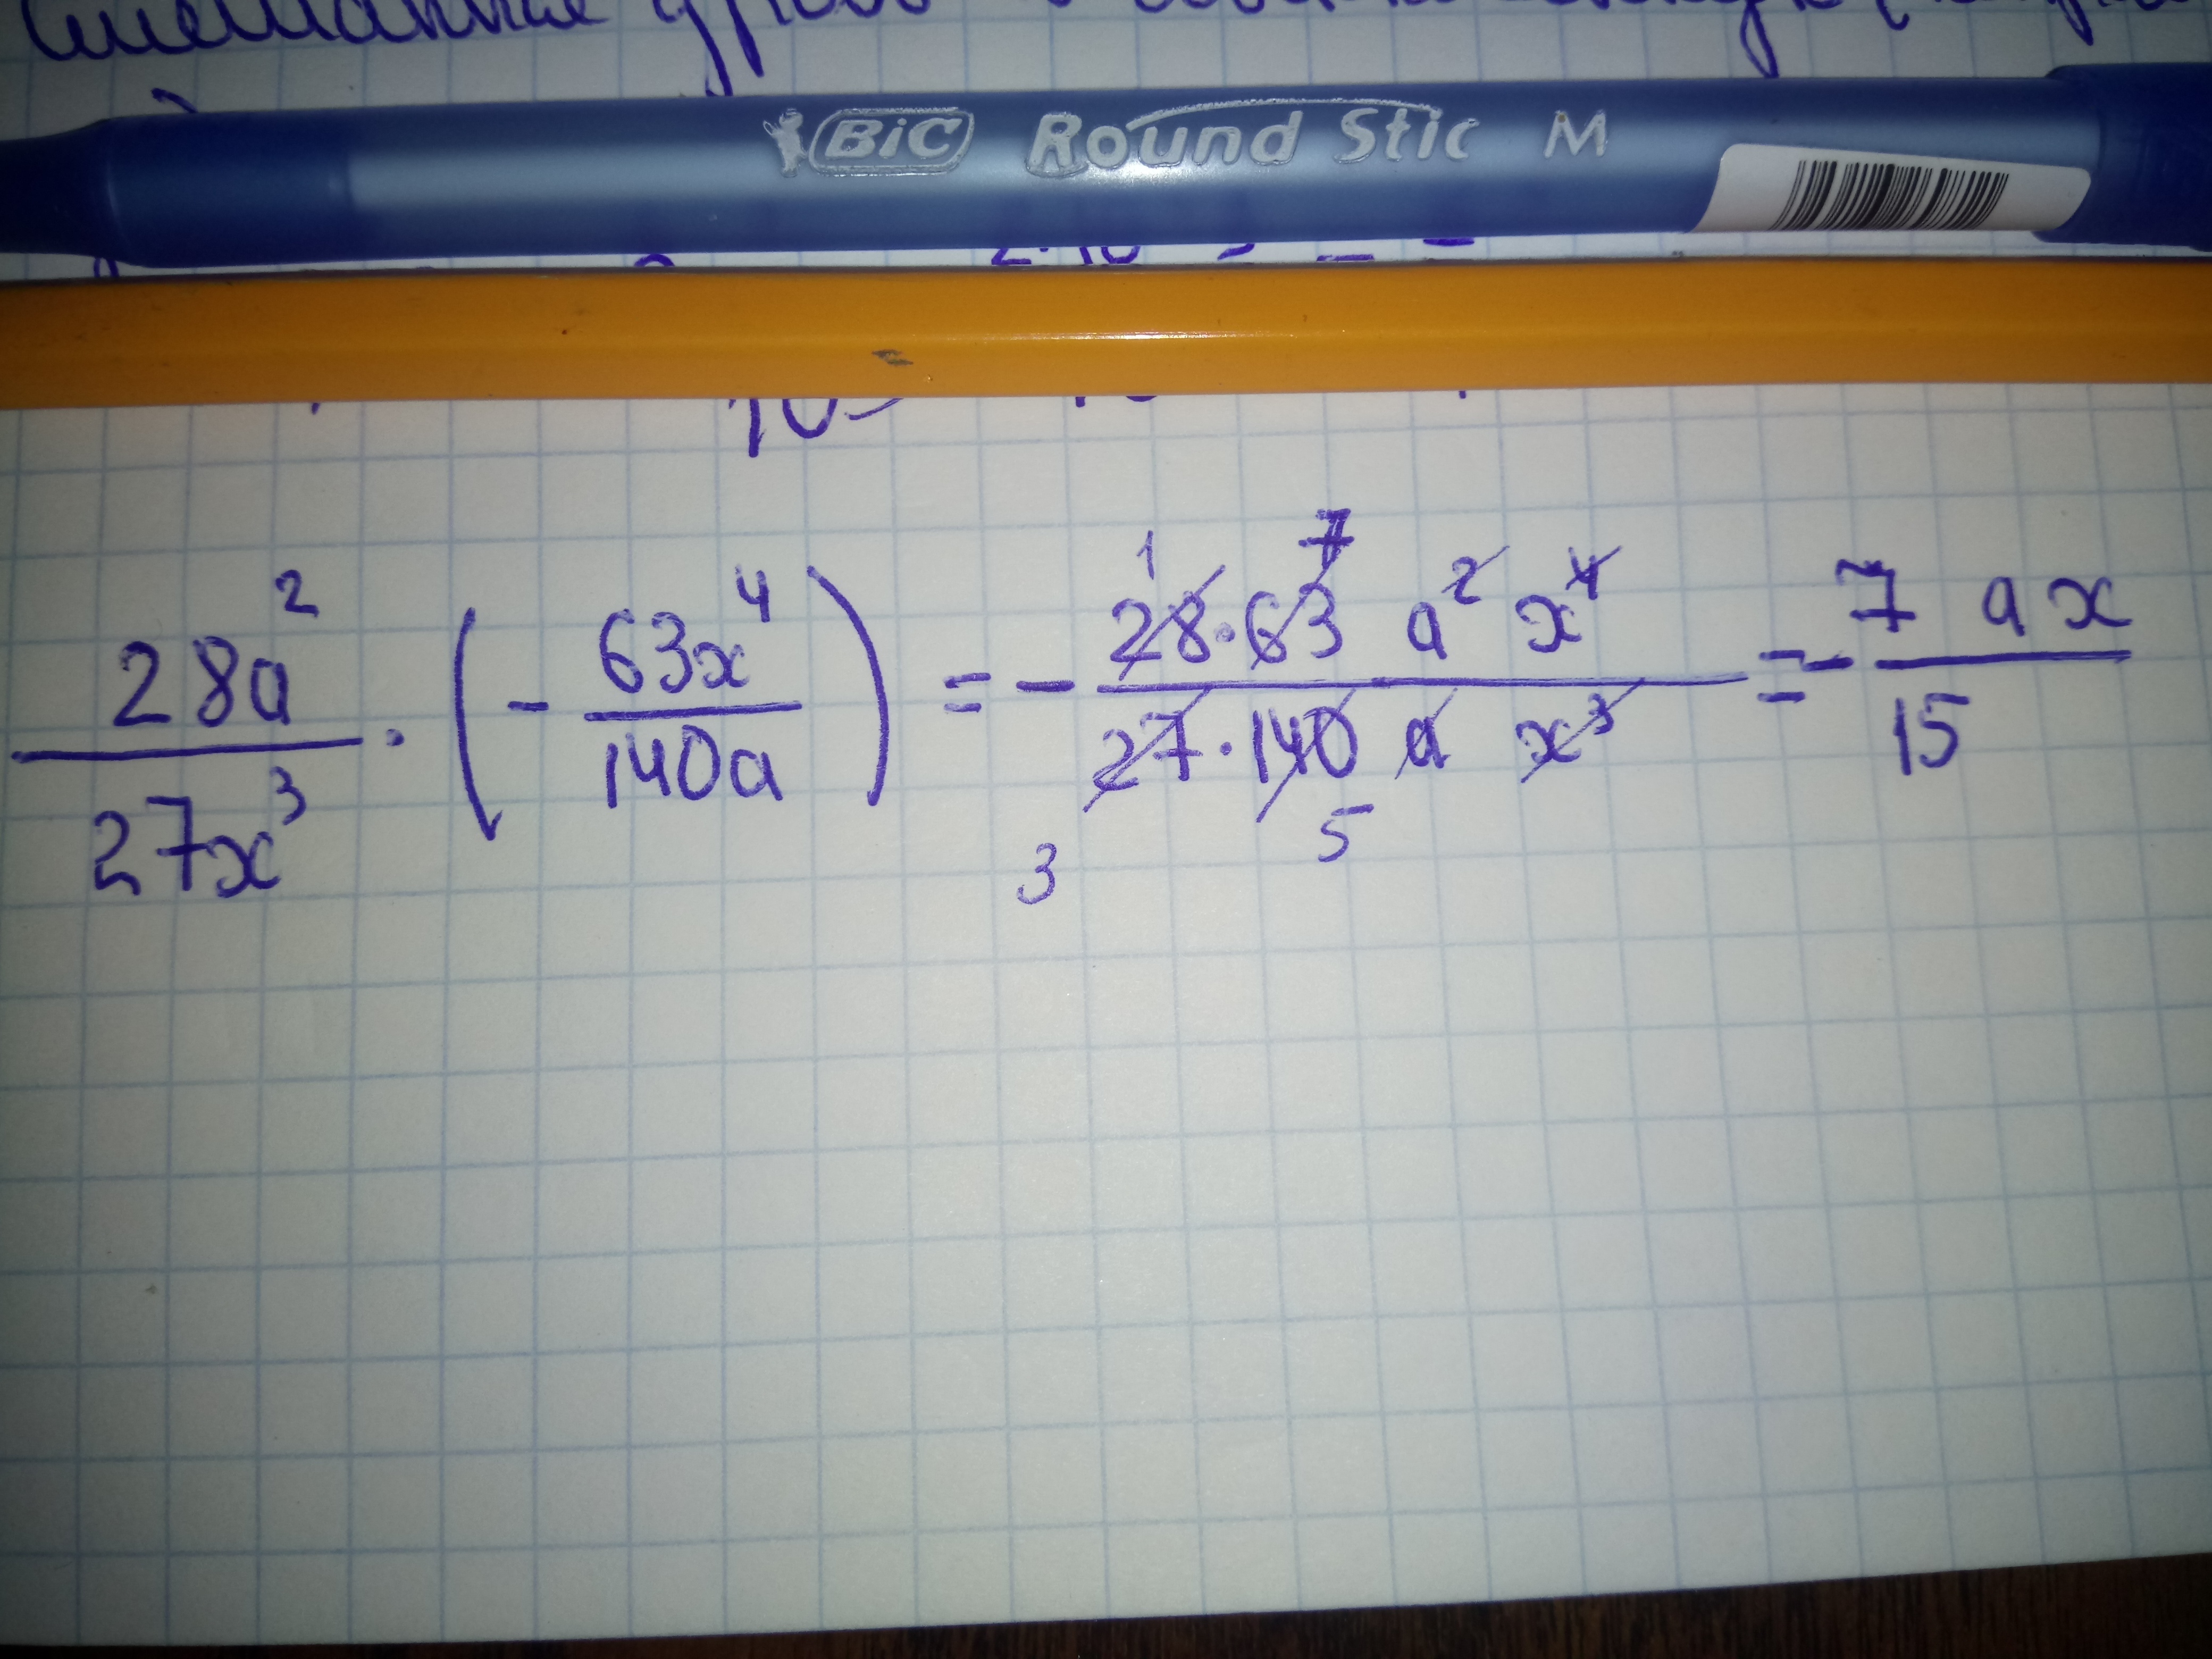 BiC Round Stic M
2·10
10
28a² / 27x³ · (- 63x⁴ / 140a) = - 28·63 a² x⁴ / 27·140 a x³ = - 7 a x / 15
1 7
3 5